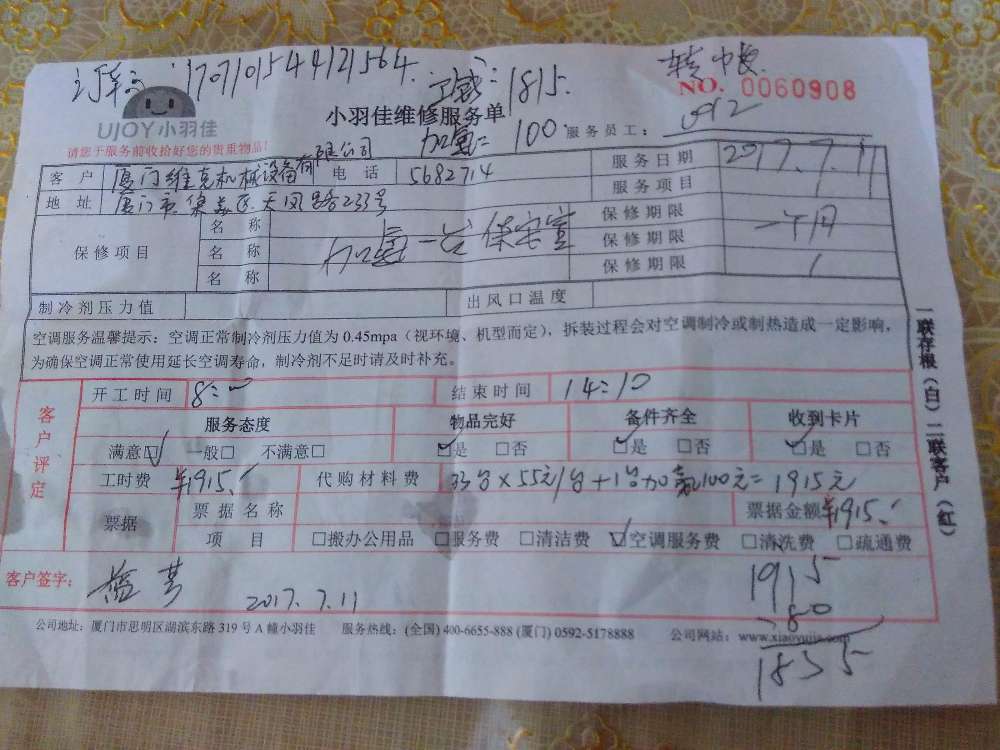 1707101544121564
1815
NO. 0060908
UJOY小羽佳
小羽佳维修服务单
加氟: 100
服务员工: 092
请您于服务前收拾好您的贵重物品!
客户 厦门维克机械设备有限公司 电话 5682714 服务日期 2017.7.11
服务项目
地址 厦门市集美区天凤路233号
保修项目
名称 保修期限
名称 加氟一台 保安室 保修期限 一个月
名称 保修期限
制冷剂压力值 出风口温度
空调服务温馨提示:空调正常制冷剂压力值为0.45mpa(视环境、机型而定),拆装过程会对空调制冷或制热造成一定影响,
为确保空调正常使用延长空调寿命,制冷剂不足时请及时补充。
一联存根(白)二联客户(红)
客户评定
开工时间 8:00 结束时间 14:10
服务态度 物品完好 备件齐全 收到卡片
满意☑ 一般□ 不满意□ ☑是 □否 ☑是 □否 ☑是 □否
工时费 ¥1915. 代购材料费 33台×55元/台+1台加氟100元=1915元
票据 票据名称 票据金额¥1915.
项目 □搬办公用品 □服务费 □清洁费 ☑空调服务费 □清洗费 □疏通费
1915
80
1835
客户签字:
2017.7.11
公司地址:厦门市思明区湖滨东路319号A幢小羽佳 服务热线:(全国)400-6655-888 (厦门)0592-5178888 公司网站:www.xiaoyujia.com